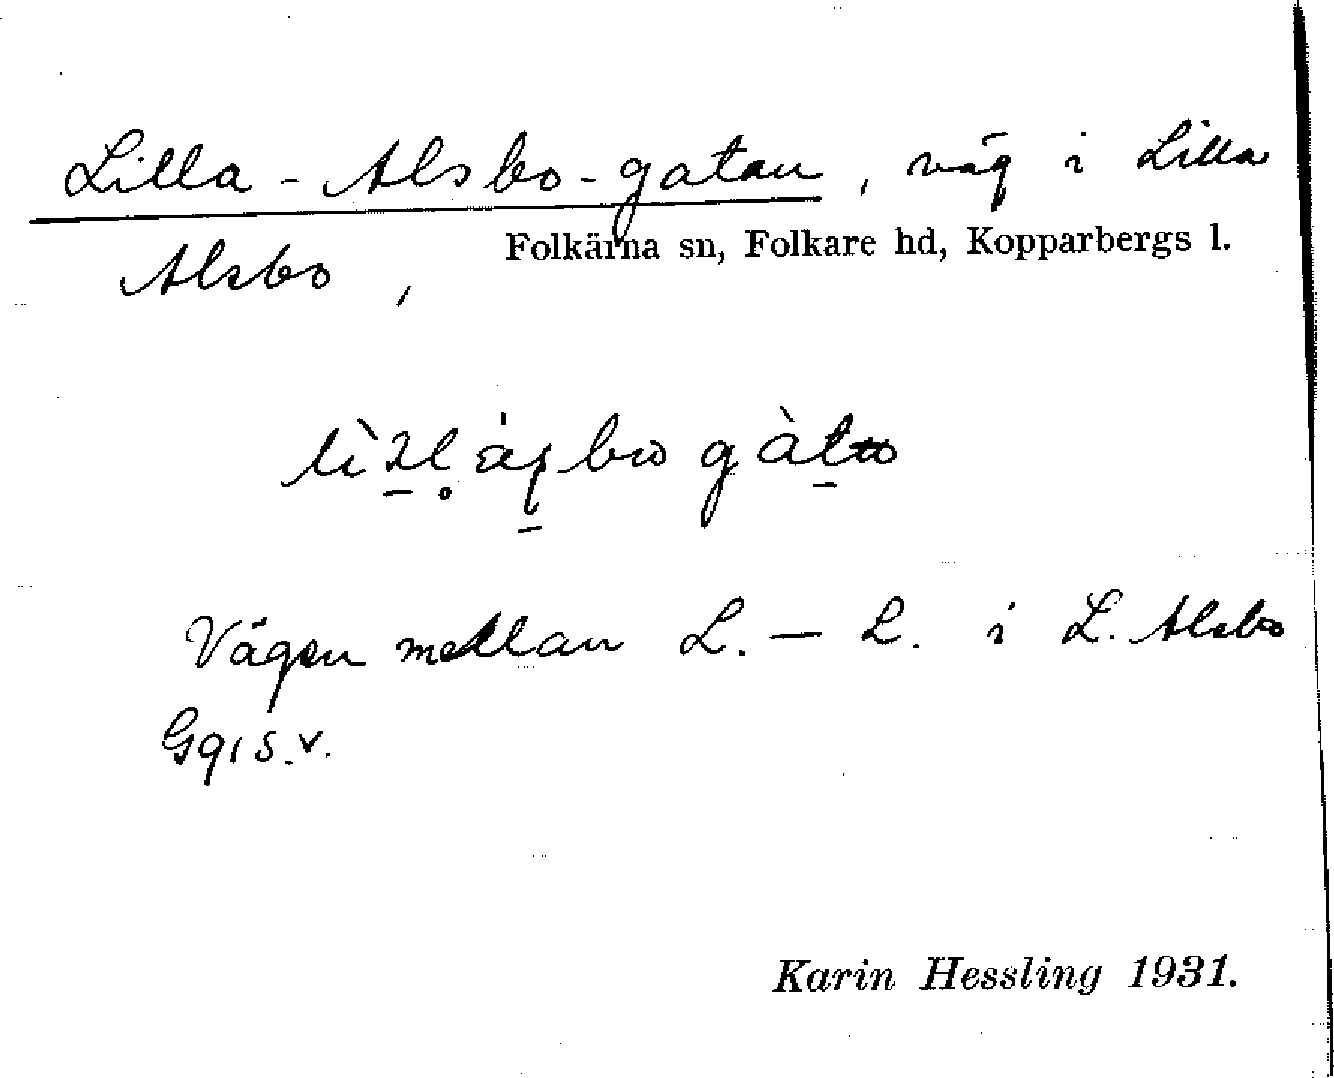 Lilla-Alsbo-gatan, väg i Lilla
Folkärna sn, Folkare hd, Kopparbergs l.
Alsbo,
Vägen mellan L. — L. i L. Alsbo
s.v.
Karin Hessling 1931.